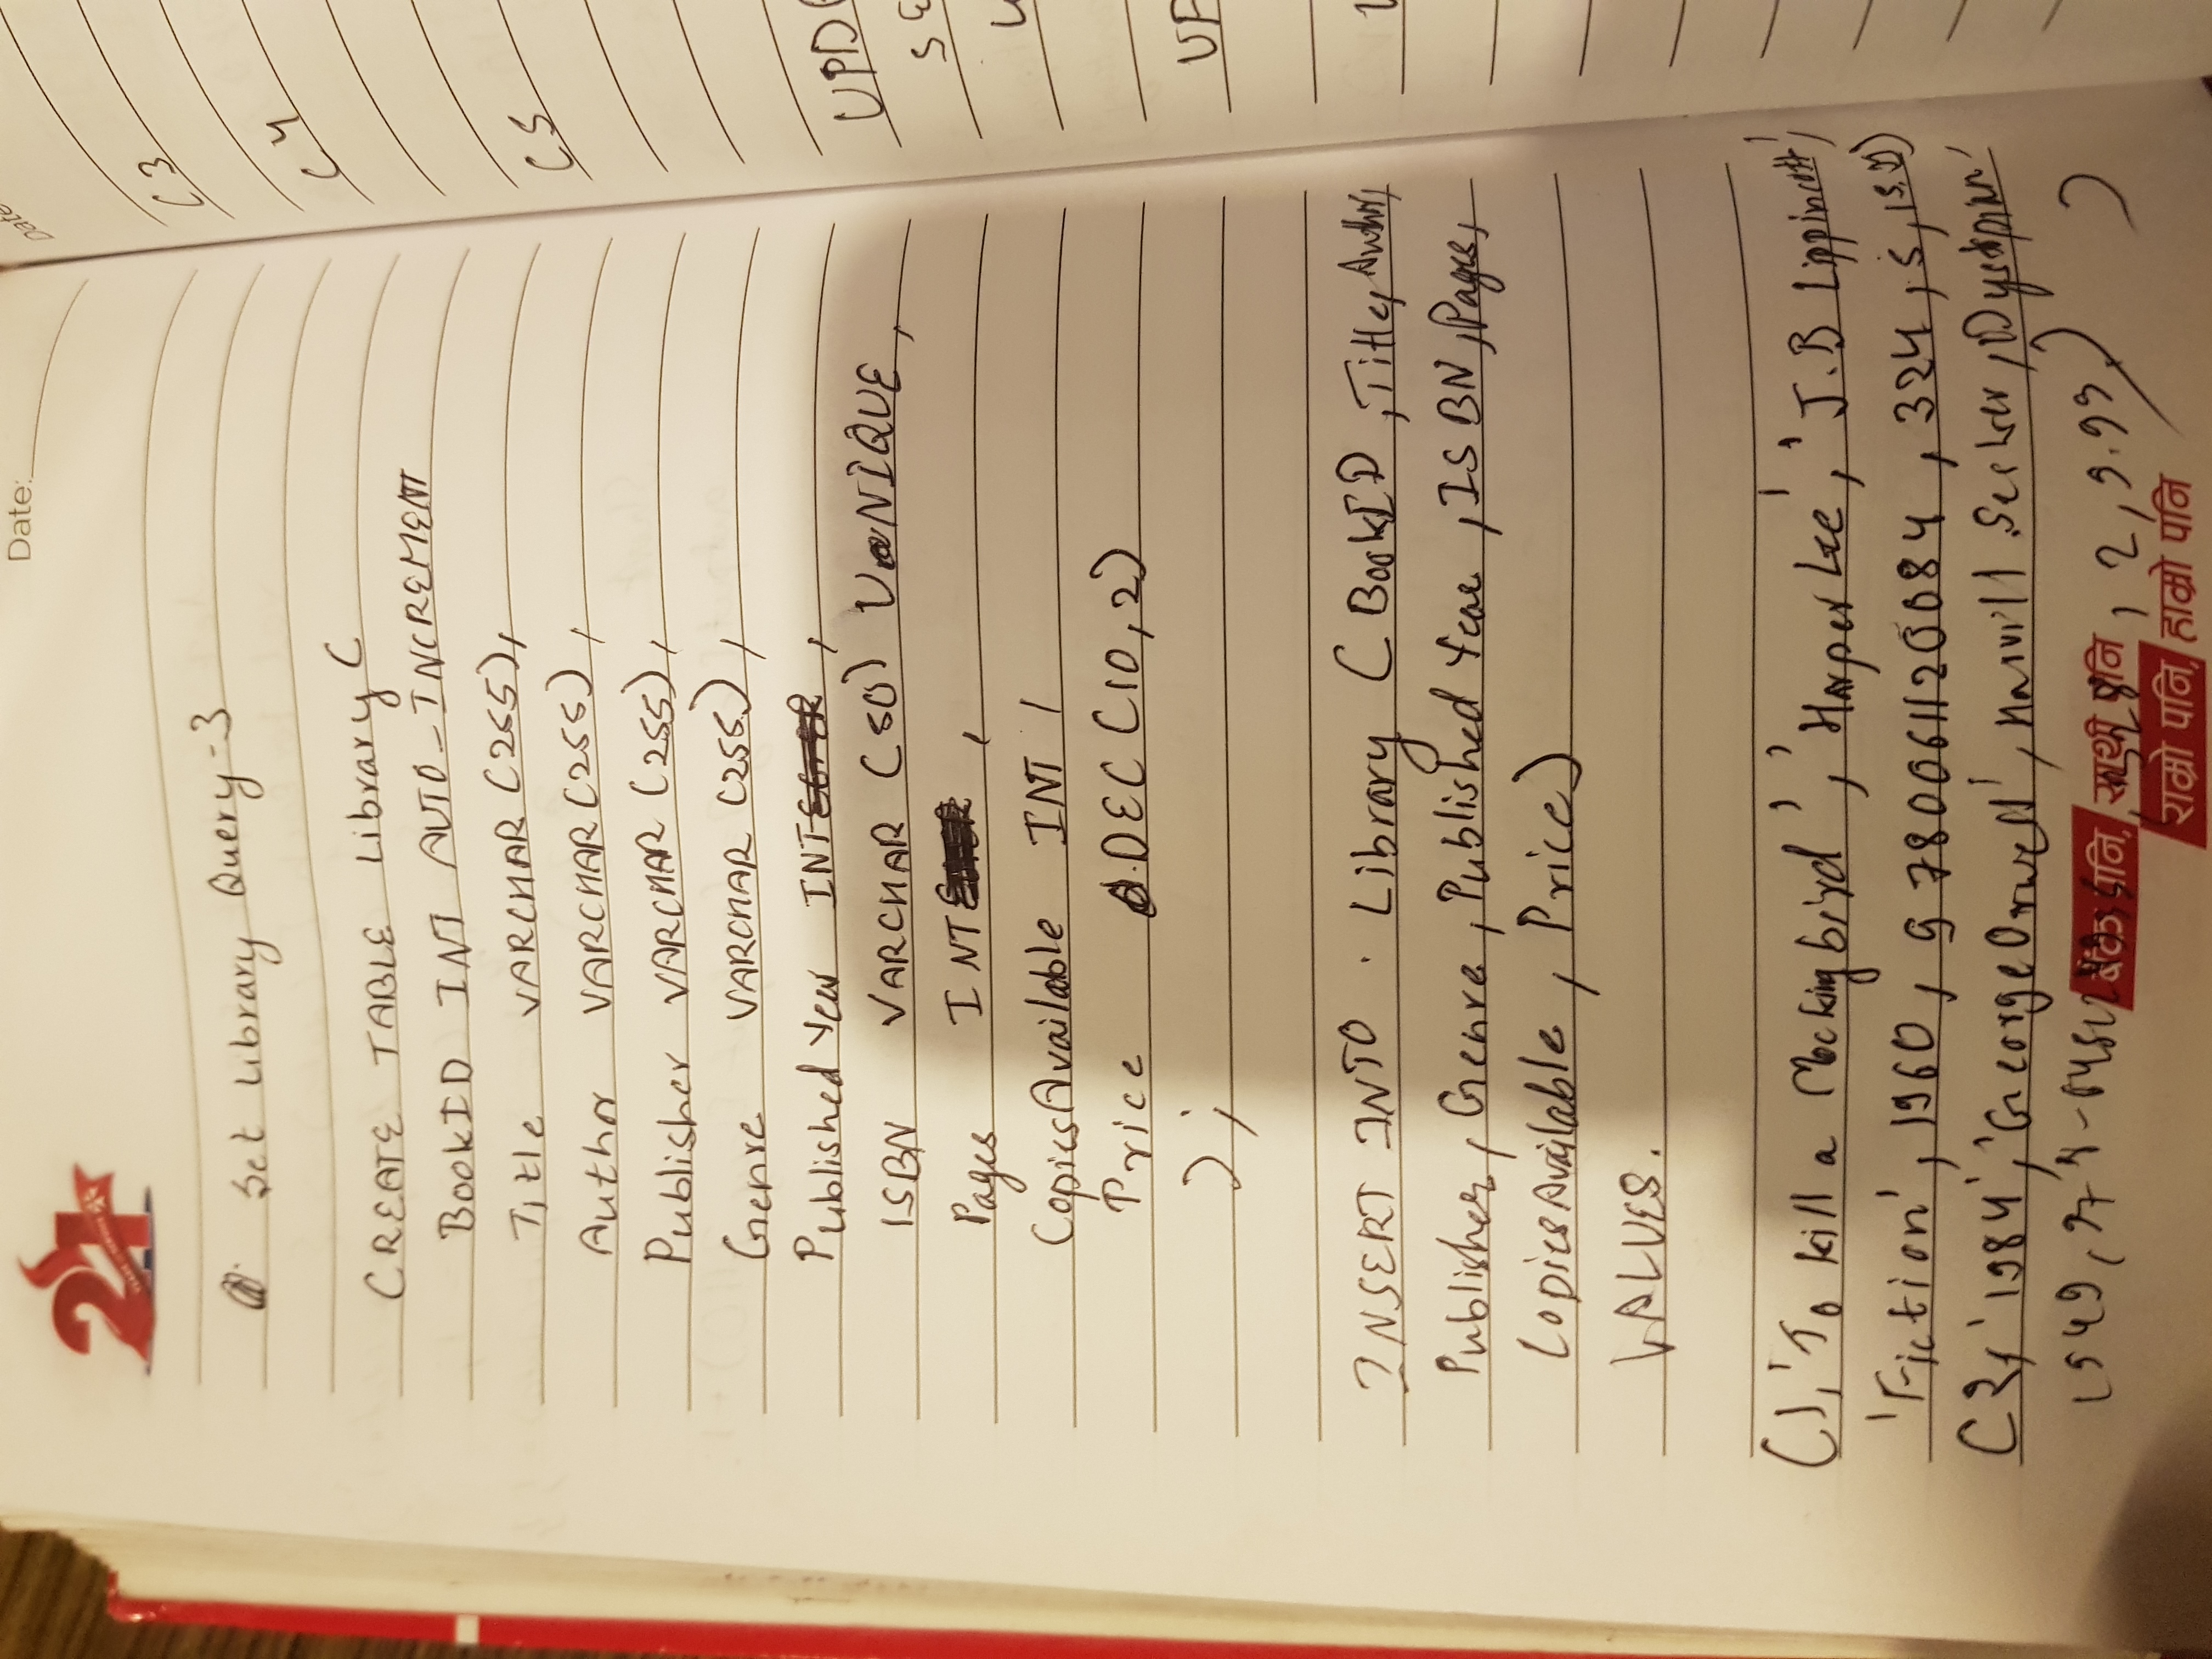 Date:
21
YEARS OF SERVICE
Set Library Query-3
CREATE TABLE Library (
BookID INT AUTO_INCREMENT
Title VARCHAR (255),
Author VARCHAR (255),
Publisher VARCHAR (255),
Genre VARCHAR (255),
Published Year INT ,
ISBN VARCHAR (50) UNIQUE,
Pages INT ,
CopiesAvailable INT ,
Price DEC (10,2)
);
INSERT INTO . Library ( BookID ,Title, Author,
Publisher, Genre, Published Year, ISBN, Pages,
CopiesAvailable, Price)
VALUES.
(1, 'To kill a Mockingbird', 'Harper Lee', 'J.B Lippincott',
'Fiction', 1960, 9780061120084, 324, 5,
(2, '1984', 'George Orwell', Harvill Secker, Dystopian'
1949, 328, 2, 9.99) )
बैंक पनि, साथी पनि
राम्रो पनि, हाम्रो पनि
Date
C3
C4
C5
UPD
SE
UP